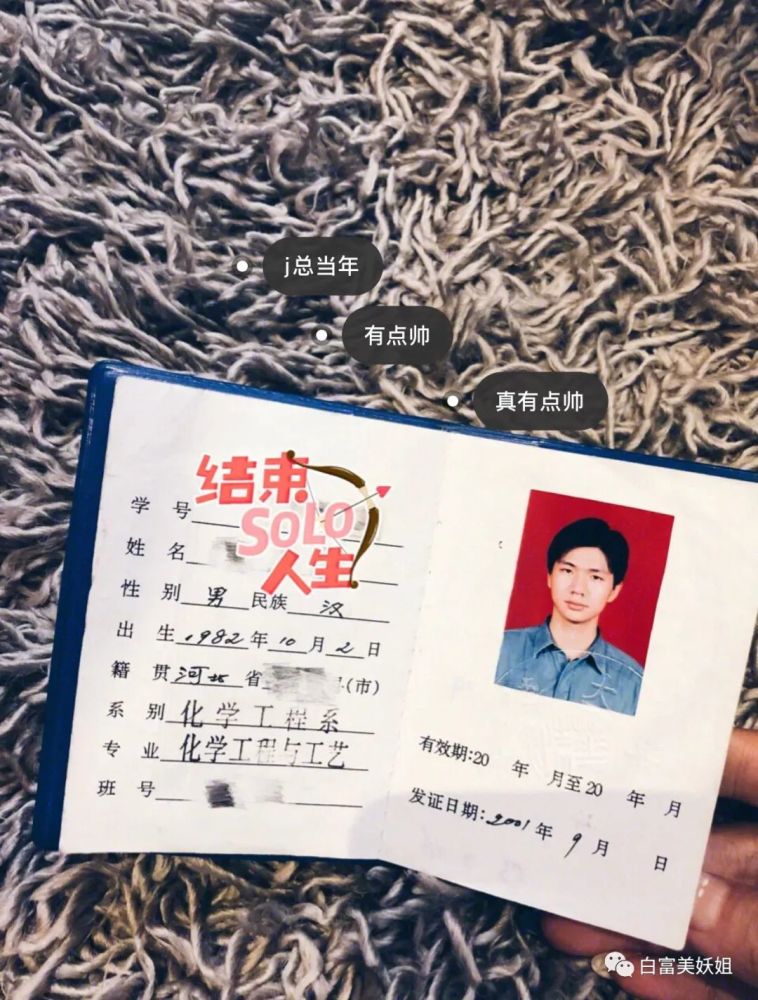 j总当年
有点帅
真有点帅
结束
SOLO
人生
学 号
姓 名
性 别 男 民族 汉
出 生 1982 年 10 月 2 日
籍 贯 河北 省 (市)
系 别 化学工程系
专 业 化学工程与工艺
班 号
有效期:20 年 月至20 年 月
发证日期:2001年 9月 日
白富美妖姐